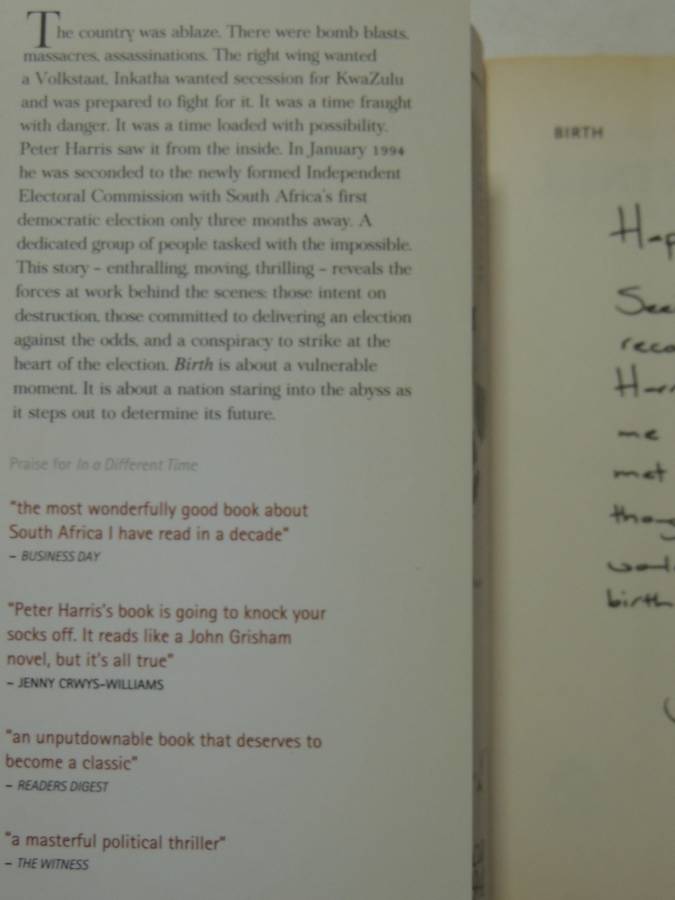 The country was ablaze. There were bomb blasts,
massacres, assassinations. The right wing wanted
a Volkstaat, Inkatha wanted secession for KwaZulu
and was prepared to fight for it. It was a time fraught
with danger. It was a time loaded with possibility.
Peter Harris saw it from the inside. In January 1994
he was seconded to the newly formed Independent
Electoral Commission with South Africa's first
democratic election only three months away. A
dedicated group of people tasked with the impossible.
This story – enthralling, moving, thrilling – reveals the
forces at work behind the scenes: those intent on
destruction, those committed to delivering an election
against the odds, and a conspiracy to strike at the
heart of the election. Birth is about a vulnerable
moment. It is about a nation staring into the abyss as
it steps out to determine its future.
Praise for In a Different Time
"the most wonderfully good book about
South Africa I have read in a decade"
– BUSINESS DAY
"Peter Harris's book is going to knock your
socks off. It reads like a John Grisham
novel, but it's all true"
– JENNY CRWYS-WILLIAMS
"an unputdownable book that deserves to
become a classic"
– READERS DIGEST
"a masterful political thriller"
– THE WITNESS
BIRTH
me
met
birth